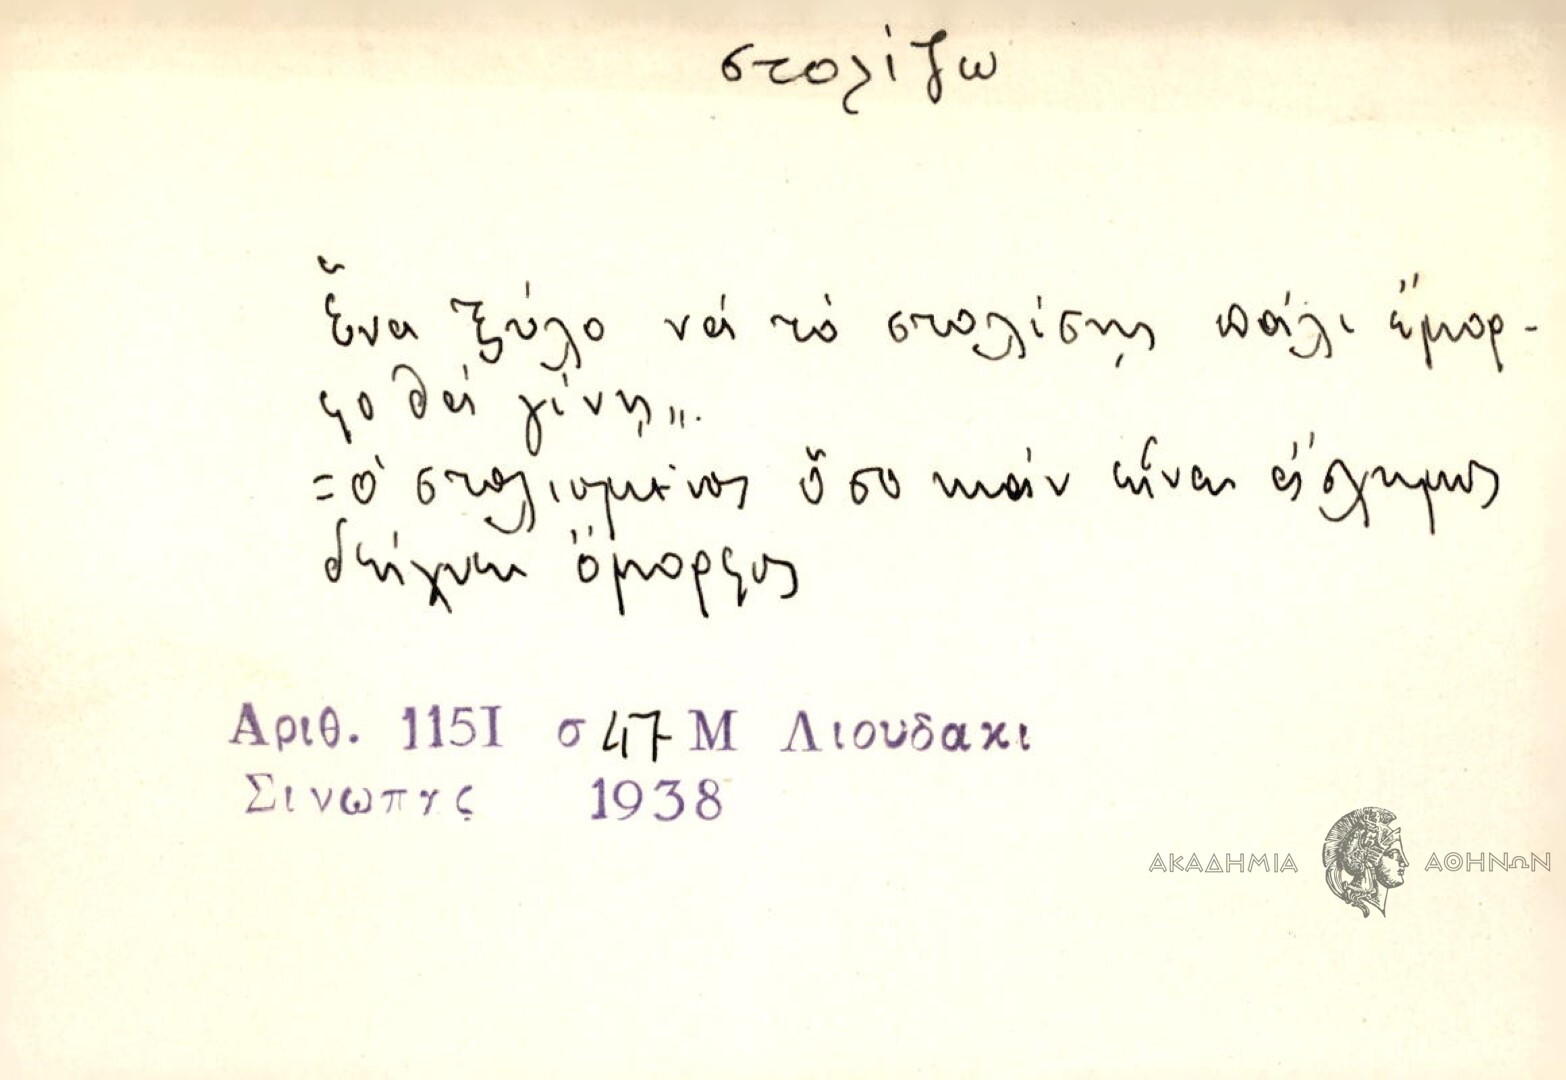 στολίζω
Ἕνα ξύλο νά τό στολίσῃς πάλι ἔμορ-
φο θά γίνῃ„.
=ὁ στολισμένος ὅσο κιάν εἶναι ἄσχημος
δείχνει ὄμορφος
Αριθ. 115Ι σ 47 Μ Λιουδακι
Σινωπης 1938
ΑΚΑΔΗΜΙΑ ΑΘΗΝΩΝ